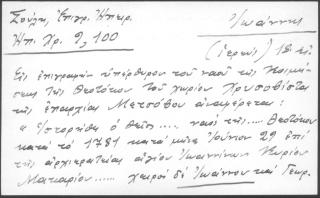 Σούλη, Ἐπιγρ. Ἠπειρ. Ἰωάννης
Ἠπ. Χρ. 9, 100 (ἱερεύς) 18 αἰ
Εἰς ἐπιγραφὴν ὑπέρθυρον τοῦ ναοῦ τῆς Κοιμή-
σεως τῆς Θεοτόκου τοῦ χωρίου Χρυσοβίστα
τῆς ἐπαρχίας Μετσόβου ἀναφέρεται:
" Ἱστορήθη ὁ θεῖος.... ναὸς τῆς.... Θεοτόκου
κατὰ τὸ 1781 κατὰ μῆνα Ἰούνιον 29 ἐπὶ
τῆς ἀρχιερατείας ἁγίου Ἰωαννίνων Κυρίου
Μακαρίου...... χειροὶ δὲ Ἰωάννου καὶ Γεωρ.